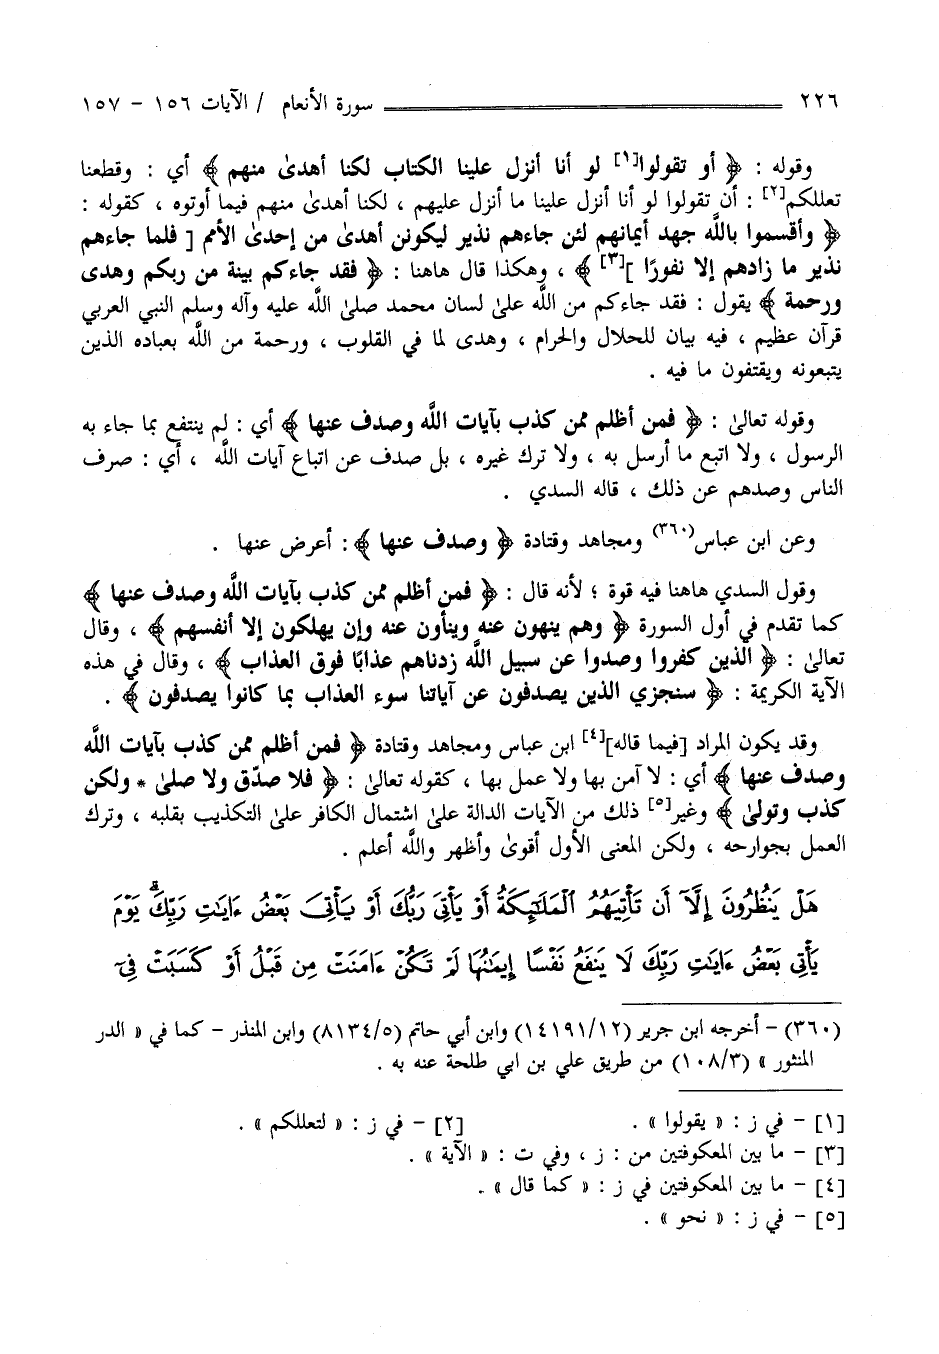 ٢٢٦ سورة الأنعام / الآيات ١٥٦ - ١٥٧
وقوله : ﴿ أو تقولوا[١] لو أنا أنزل علينا الكتاب لكنا أهدىٰ منهم ﴾ أي : وقطعنا
تعللكم[٢] : أن تقولوا لو أنا أنزل علينا ما أنزل عليهم ، لكنا أهدىٰ منهم فيما أوتوه ، كقوله :
﴿ وأقسموا باللَّه جهد أيمانهم لئن جاءهم نذير ليكونن أهدىٰ من إحدىٰ الأمم [ فلما جاءهم
نذير ما زادهم إلا نفورًا ][٣] ﴾ ، وهكذا قال هاهنا : ﴿ فقد جاءكم بينة من ربكم وهدى
ورحمة ﴾ يقول : فقد جاءكم من اللَّه علىٰ لسان محمد صلىٰ اللَّه عليه وآله وسلم النبي العربي
قرآن عظيم ، فيه بيان للحلال والحرام ، وهدى لما في القلوب ، ورحمة من اللَّه بعباده الذين
يتبعونه ويقتفون ما فيه .
وقوله تعالىٰ : ﴿ فمن أظلم ممن كذب بآيات اللَّه وصدف عنها ﴾ أي : لم ينتفع بما جاء به
الرسول ، ولا اتبع ما أرسل به ، ولا ترك غيره ، بل صدف عن اتباع آيات اللَّه ، أي : صرف
الناس وصدهم عن ذلك ، قاله السدي .
وعن ابن عباس(٣٦٠) ومجاهد وقتادة ﴿ وصدف عنها ﴾ : أعرض عنها .
وقول السدي هاهنا فيه قوة ؛ لأنه قال : ﴿ فمن أظلم ممن كذب بآيات اللَّه وصدف عنها ﴾
كما تقدم في أول السورة ﴿ وهم ينهون عنه وينأون عنه وإن يهلكون إلا أنفسهم ﴾ ، وقال
تعالىٰ : ﴿ الذين كفروا وصدوا عن سبيل اللَّه زدناهم عذابًا فوق العذاب ﴾ ، وقال في هذه
الآية الكريمة : ﴿ سنجزي الذين يصدفون عن آياتنا سوء العذاب بما كانوا يصدفون ﴾ .
وقد يكون المراد [فيما قاله][٤] ابن عباس ومجاهد وقتادة ﴿ فمن أظلم ممن كذب بآيات اللَّه
وصدف عنها ﴾ أي : لا آمن بها ولا عمل بها ، كقوله تعالىٰ : ﴿ فلا صدّق ولا صلىٰ * ولكن
كذب وتولىٰ ﴾ وغير[٥] ذلك من الآيات الدالة علىٰ اشتمال الكافر علىٰ التكذيب بقلبه ، وترك
العمل بجوارحه ، ولكن المعنى الأول أقوىٰ وأظهر واللَّه أعلم .
هَلْ يَنظُرُونَ إِلَّآ أَن تَأْتِيَهُمُ ٱلْمَلَٰٓئِكَةُ أَوْ يَأْتِىَ رَبُّكَ أَوْ يَأْتِىَ بَعْضُ ءَايَٰتِ رَبِّكَ ۗ يَوْمَ
يَأْتِى بَعْضُ ءَايَٰتِ رَبِّكَ لَا يَنفَعُ نَفْسًا إِيمَٰنُهَا لَمْ تَكُنْ ءَامَنَتْ مِن قَبْلُ أَوْ كَسَبَتْ فِىٓ
(٣٦٠) - أخرجه ابن جرير (١٤١٩١/١٢) وابن أبي حاتم (٨١٣٤/٥) وابن المنذر - كما في « الدر
المنثور » (١٠٨/٣) من طريق علي بن ابي طلحة عنه به .
[١] - في ز : « يقولوا » . [٢] - في ز : « لتعللكم » .
[٣] - ما بين المعكوفتين من : ز ، وفي ت : « الآية » .
[٤] - ما بين المعكوفتين في ز : « كما قال » .
[٥] - في ز : « نحو » .